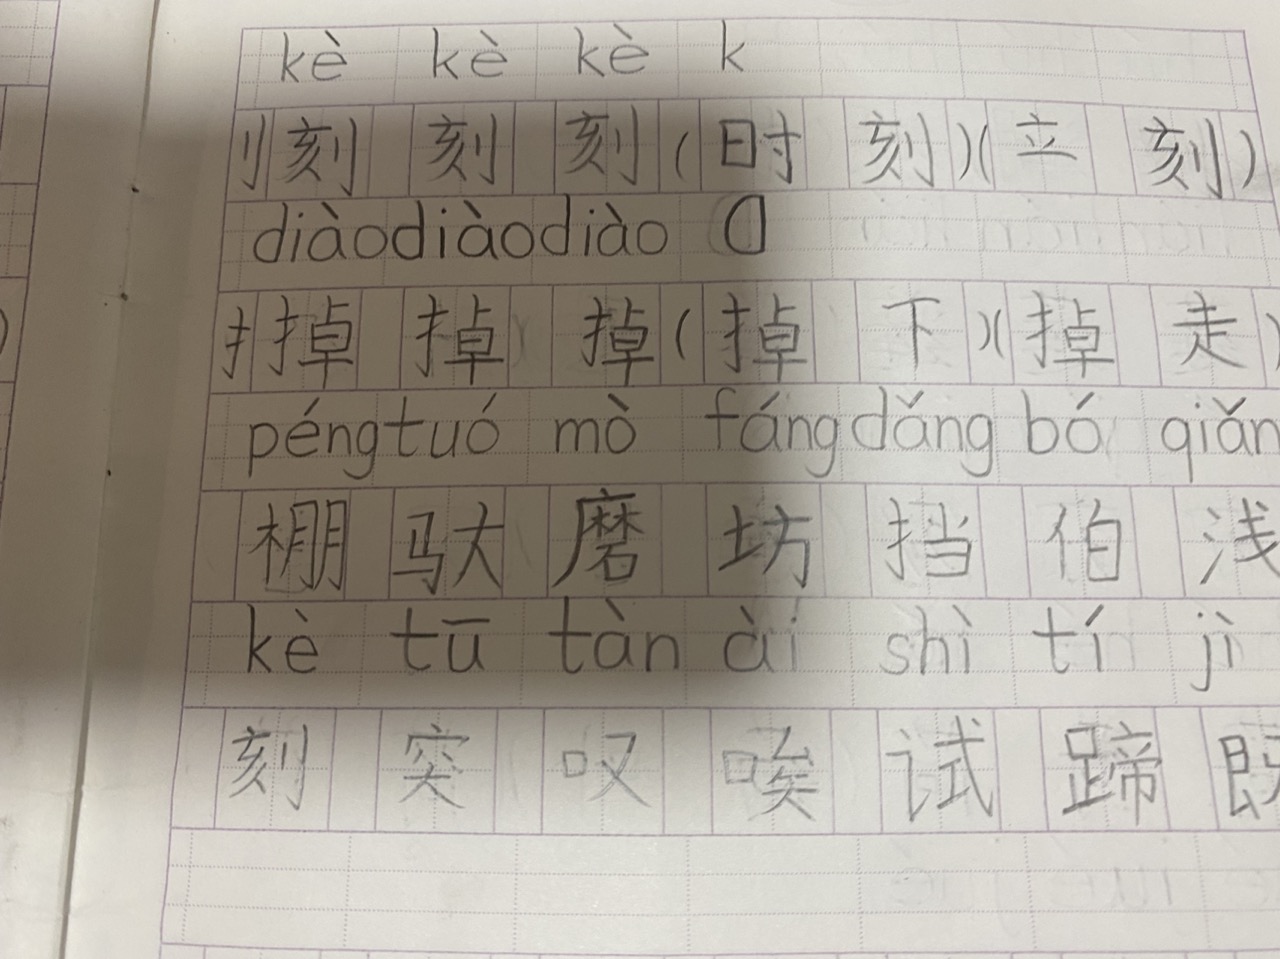 kè kè kè k
刂 刻 刻 刻 (时 刻)(立 刻)
diào diào diào d
扌 掉 掉 掉 (掉 下)(掉 走)
péng tuó mò fáng dǎng bó qiǎn
棚 驮 磨 坊 挡 伯 浅
kè tū tàn ài shì tí jì
刻 突 叹 唉 试 蹄 既